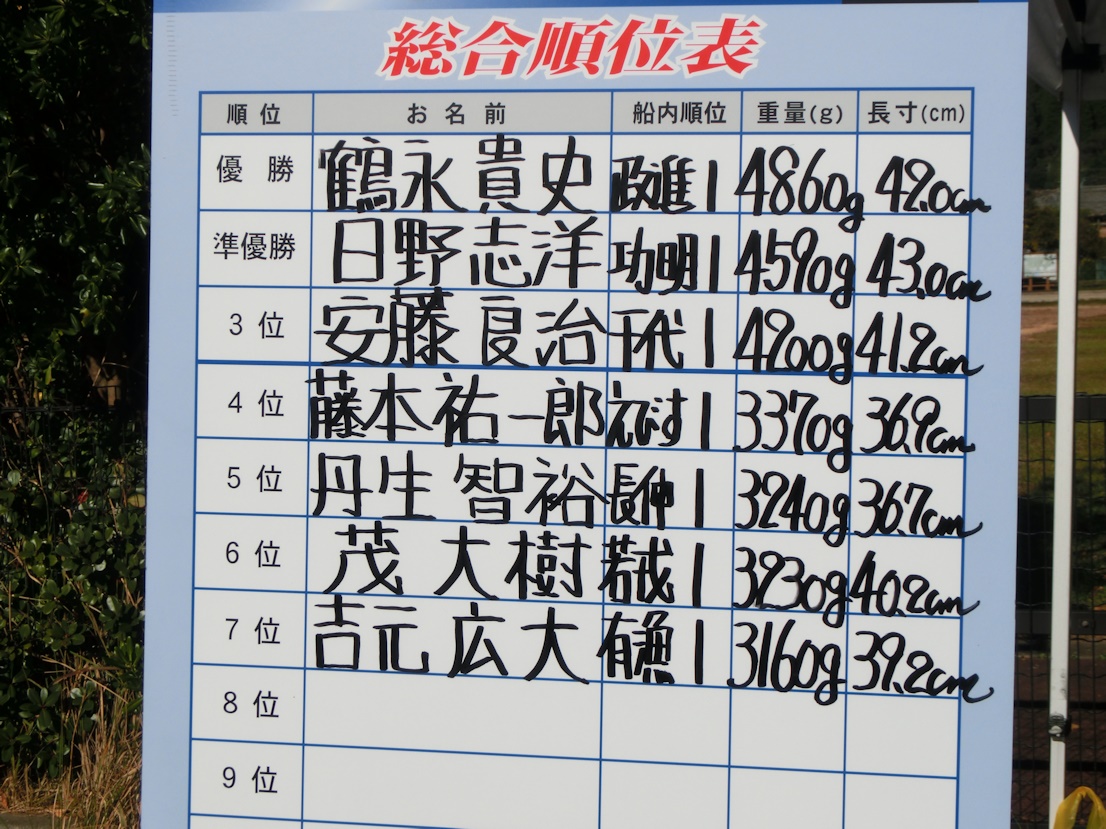 総合順位表
順位 お名前 船内順位 重量(g) 長寸(cm)
優勝 鶴永貴史 政進1 4860g 42.0cm
準優勝 日野志洋 功明1 4590g 43.0cm
3位 安藤良治 千代1 4200g 41.2cm
4位 藤本祐一郎 えびす1 3370g 36.9cm
5位 丹生智裕 長伸1 3240g 36.7cm
6位 茂大樹 若戎1 3230g 40.2cm
7位 吉元広大 有漁1 3160g 39.2cm
8位
9位